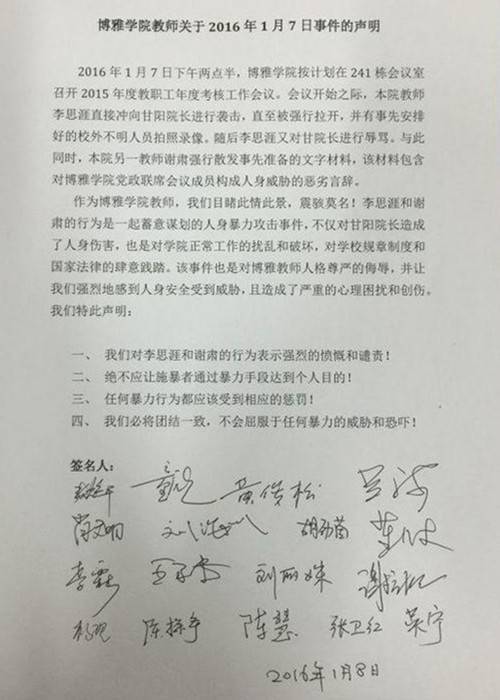 博雅学院教师关于 2016 年 1 月 7 日事件的声明
2016 年 1 月 7 日下午两点半，博雅学院按计划在 241 栋会议室
召开 2015 年度教职工年度考核工作会议。会议开始之际，本院教师
李思涯直接冲向甘阳院长进行袭击，直至被强行拉开，并有事先安排
好的校外不明人员拍照录像。随后李思涯又对甘院长进行辱骂。与此
同时，本院另一教师谢肃强行散发事先准备的文字材料，该材料包含
对博雅学院党政联席会议成员构成人身威胁的恶劣言辞。
作为博雅学院教师，我们目睹此情此景，震骇莫名！李思涯和谢
肃的行为是一起蓄意谋划的人身暴力攻击事件，不仅对甘阳院长造成
了人身伤害，也是对学院正常工作的扰乱和破坏，对学校规章制度和
国家法律的肆意践踏。该事件也是对博雅教师人格尊严的侮辱，并让
我们强烈地感到人身安全受到威胁，且造成了严重的心理困扰和创伤。
我们特此声明：
一、 我们对李思涯和谢肃的行为表示强烈的愤慨和谴责！
二、 绝不应让施暴者通过暴力手段达到个人目的！
三、 任何暴力行为都应该受到相应的惩罚！
四、 我们必将团结一致，不会屈服于任何暴力的威胁和恐吓！
签名人：
黄俊松
肖文明
李霖 刘丽姝
陈慧 张卫红
2016年1月8日